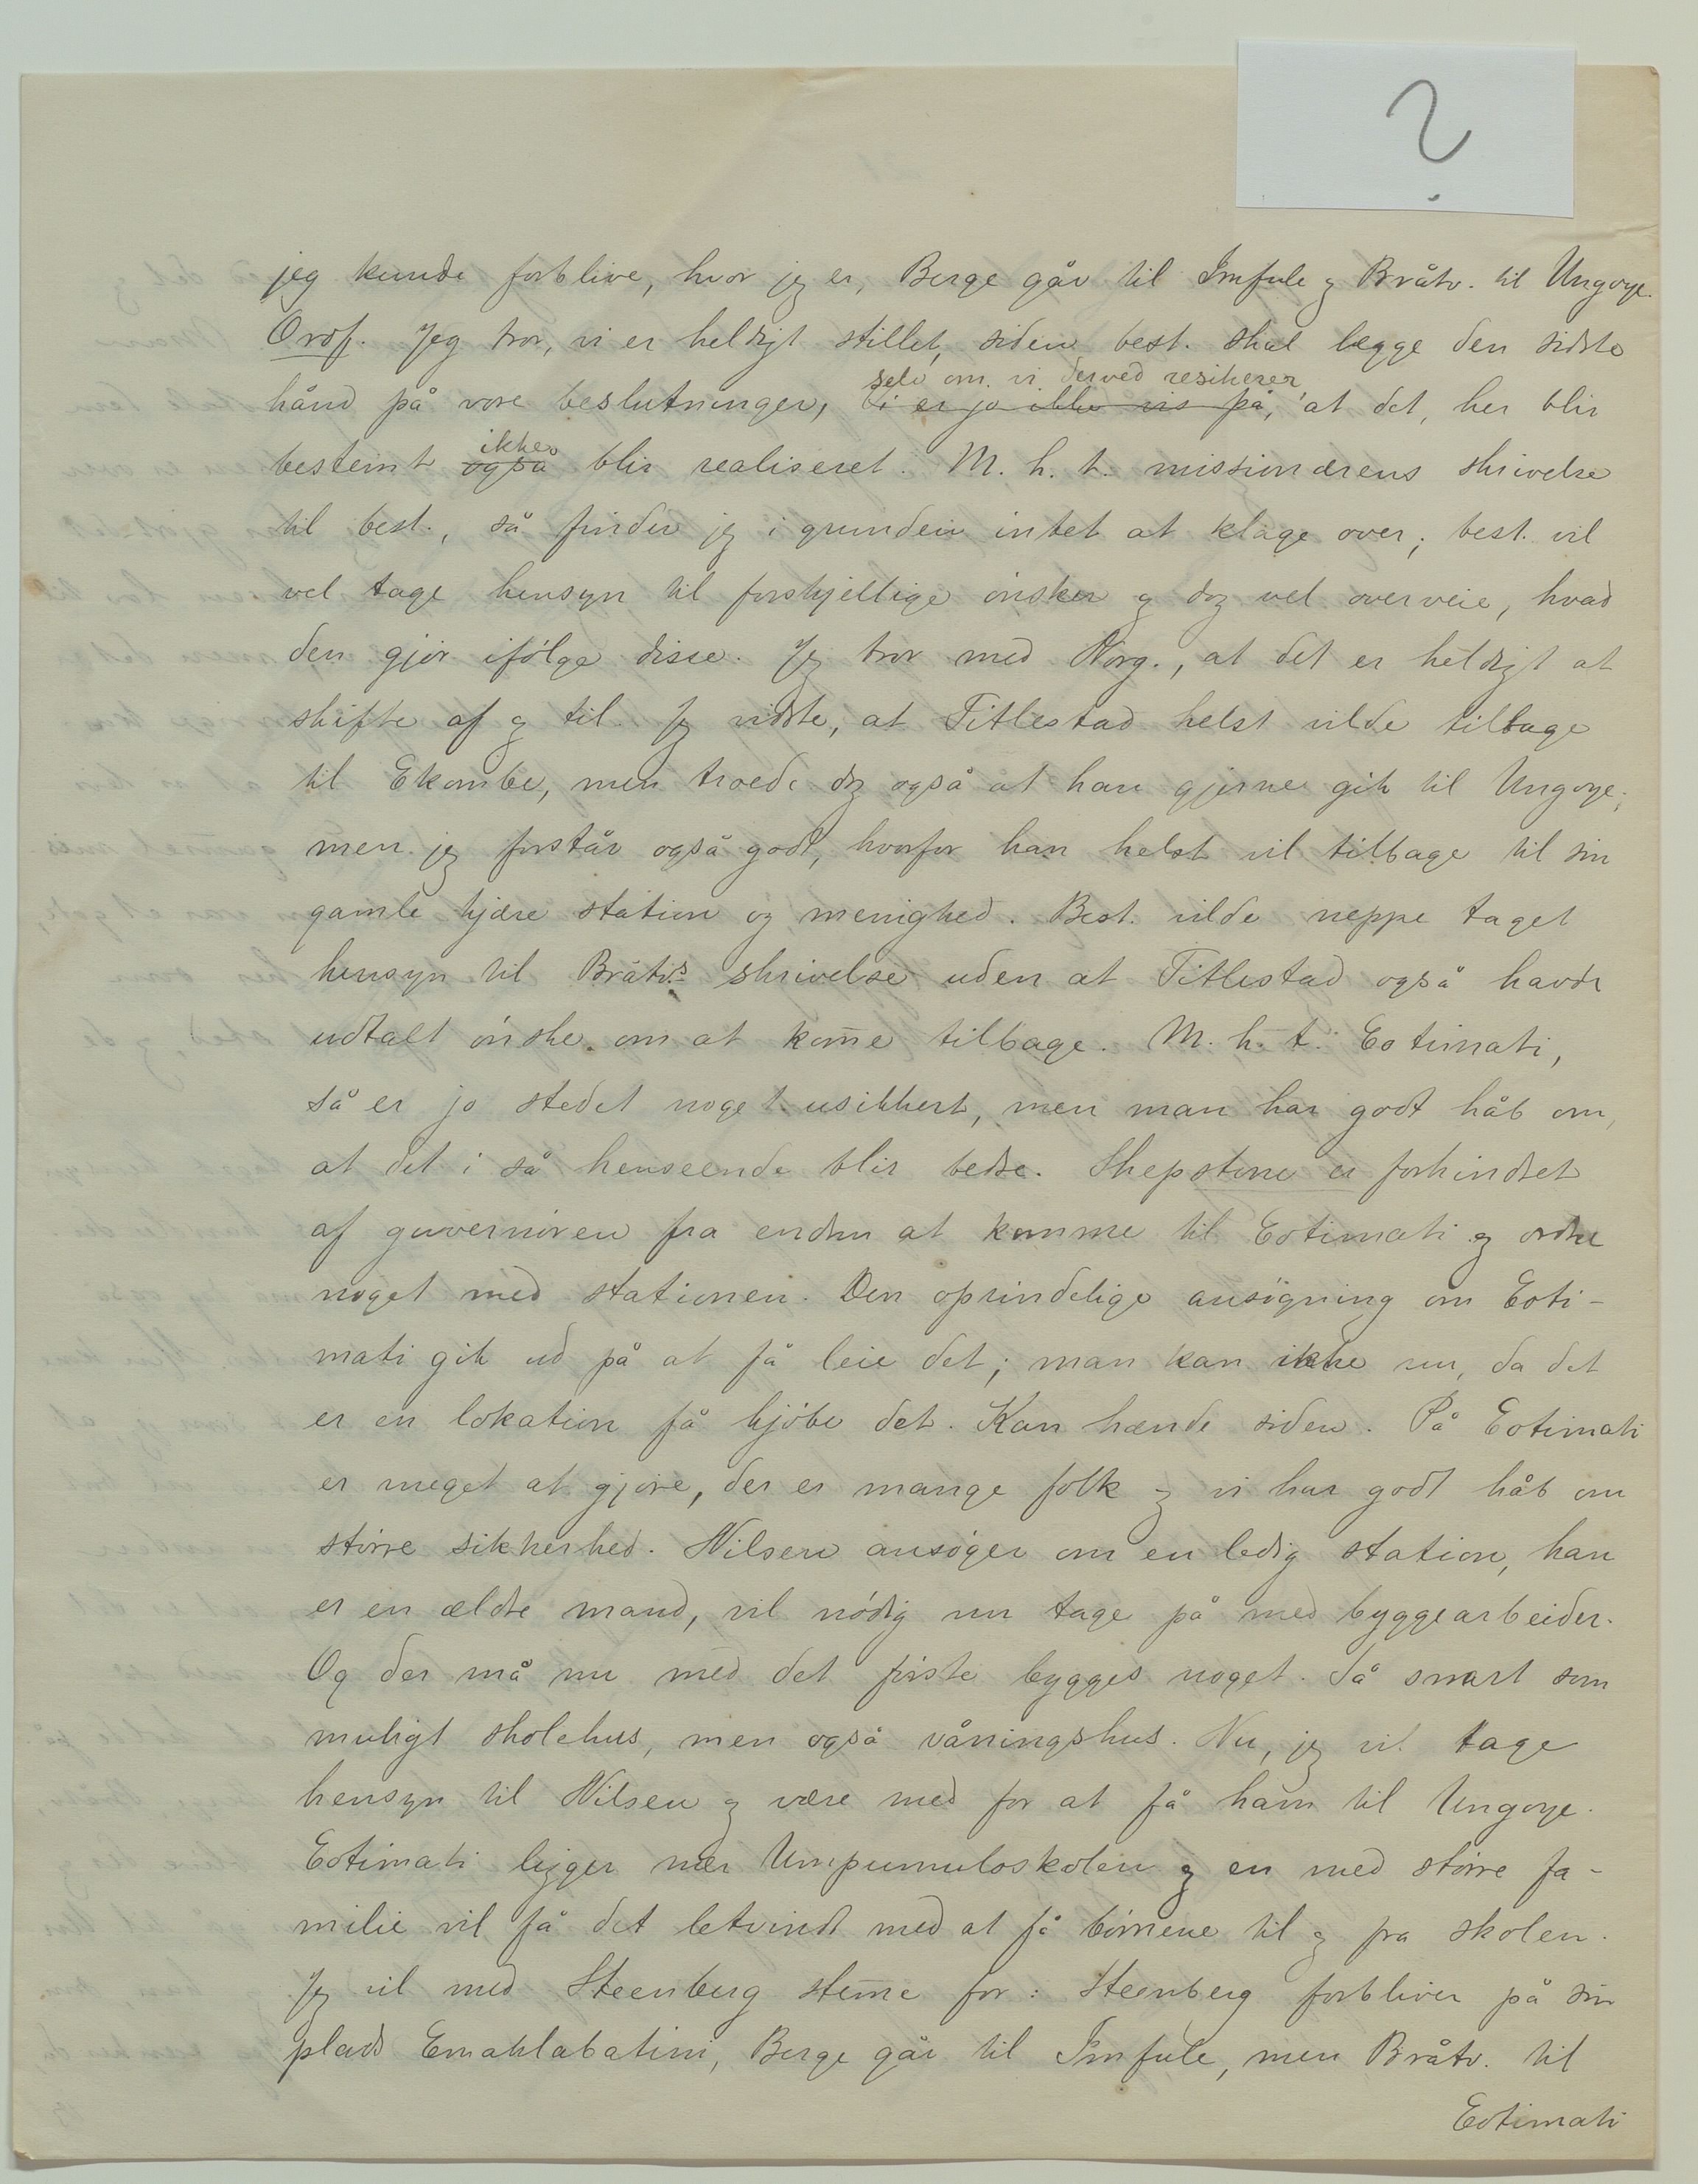 ?
jeg kunde forblive, hvor jeg er, Berge går til Imfule og Bråtv. til Ungoye.
Ordf. Jeg tror, vi er heldigt stillet, siden best. skal lægge den sidste
selv om vi derved resikerer,
hånd på vore beslutninger, vi er jo ikke vis på, at det, her blir
ikke
bestemt også blir realiseret. M. h. t. missionærens skrivelse
til best., så finder jeg i grunden intet at klage over; best. vil
vel tage hensyn til forskjellige ønsker og dog vel overveie, hvad
den gjør ifølge disse. Jeg tror med Norg., at det er heldigt at
skifte af og til. Jeg vidste, at Titlestad helst vilde tilbage
til Ekombe, men troede dog også at han gjerne gik til Ungoye;
men jeg forstår også godt, hvorfor han helst vil tilbage til sin
gamle kjære station og menighed. Best. vilde neppe taget
hensyn til Bråtv.s skrivelse uden at Titlestad også havde
udtalt ønske om at kom̅e tilbage. M. h. t. Eotimati,
så er jo stedet noget usikkert, men man har godt håb om,
at det i så henseende blir bedre. Shepstone er forhindret
af guvernøren fra endnu at komme til Eotimati og ordne
noget med stationen. Den oprindelige ansøgning om Eoti-
mati gik ud på at få leie det; man kan ikke nu, da det
er en lokation få kjøbe det. Kan hænde siden. På Eotimati
er meget at gjøre, der er mange folk og vi har godt håb om
større sikkerhed. Nilsen ansøger om en ledig station, han
er en ældre mand, vil nødig nu tage på med byggearbeider.
Og der må nu med det første bygges noget. Så snart som
muligt skolehus, men også våningshus. Nu, jeg vil tage
hensyn til Nilsen og være med for at få ham til Ungoye.
Eotimati ligger nær Umpumuloskolen og en med større fa-
milie vil få det letvindt med at få børnene til og fra skolen.
Jeg vil med Steenberg stem̅e for: Steenberg forbliver på sin
plads Emahlabatini, Berge går til Imfule, men Bråtv. til
Eotimati